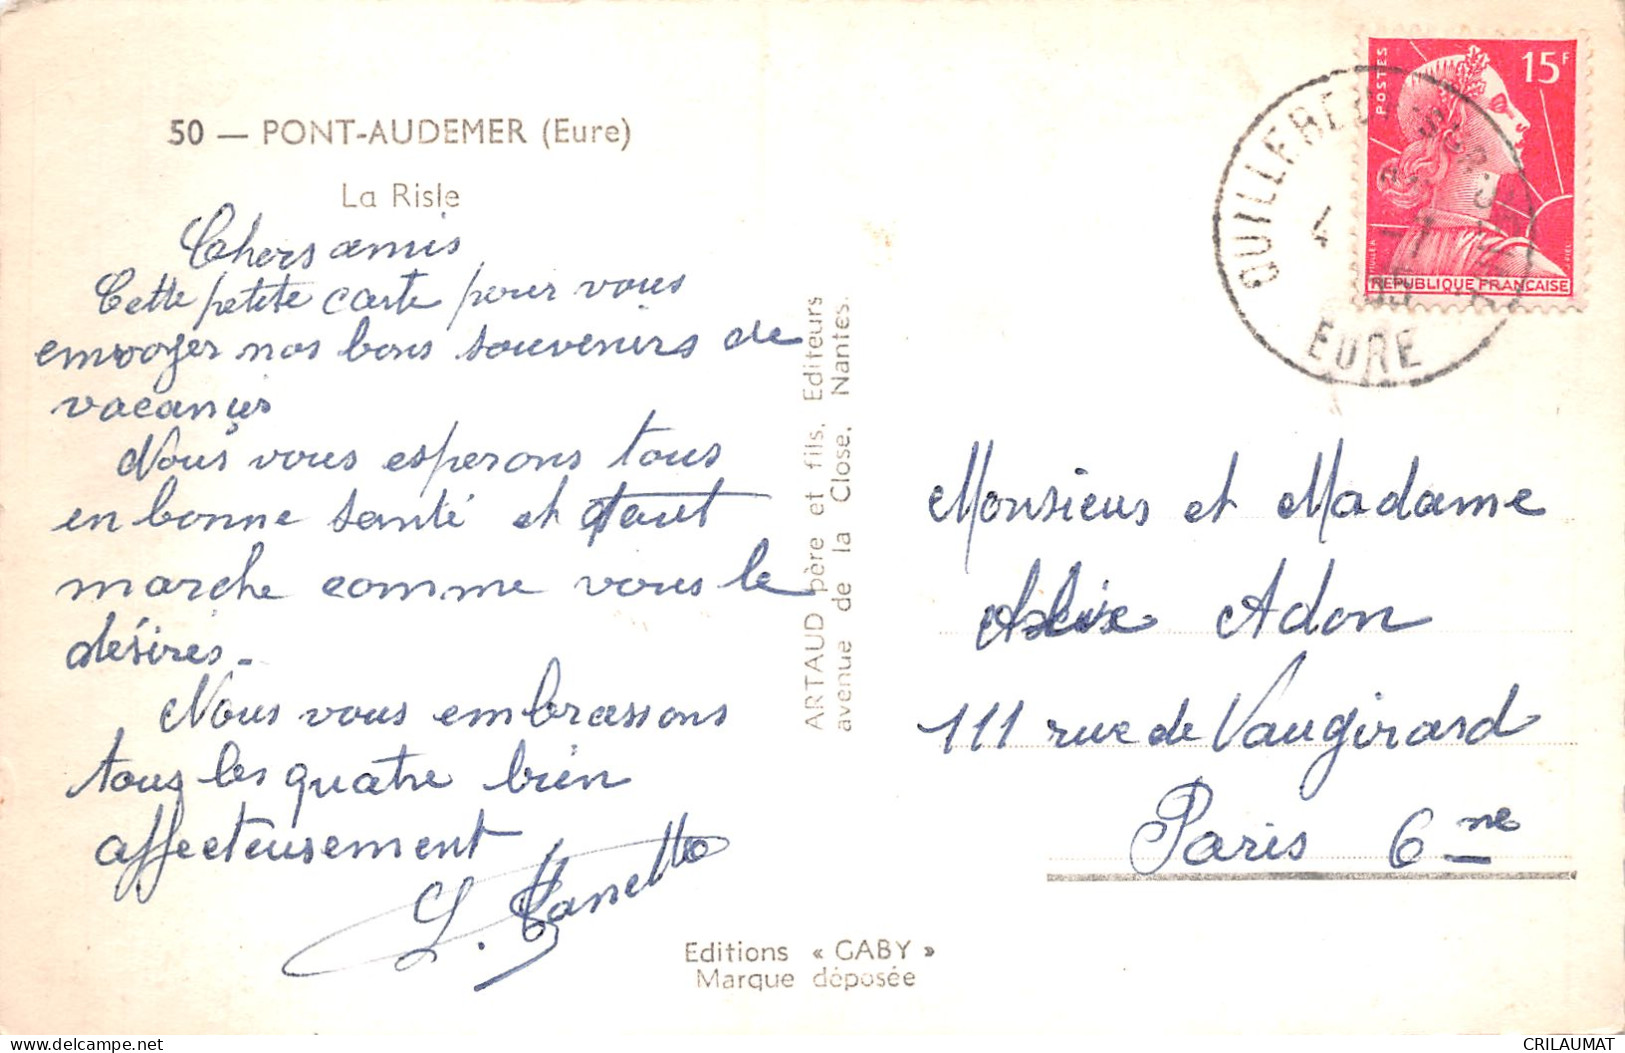 50 — PONT-AUDEMER (Eure)
La Risle
Chers amis
Cette petite carte pour vous
envoyer nos bons souvenirs de
vacances
Nous vous esperons tous
en bonne santé et tout
marche comme vous le
désires.
Nous vous embrassons
tous les quatre bien
affecteusement
ARTAUD père et fils, Editeurs
avenue de la Close, Nantes.
Editions « GABY »
Marque déposée
POSTES
15F
RÉPUBLIQUE FRANÇAISE
QUILLEBEUF SUR SEINE
EURE
Monsieur et Madame
Adon
111 rue de Vaugirard
Paris 6me
CRILAUMAT